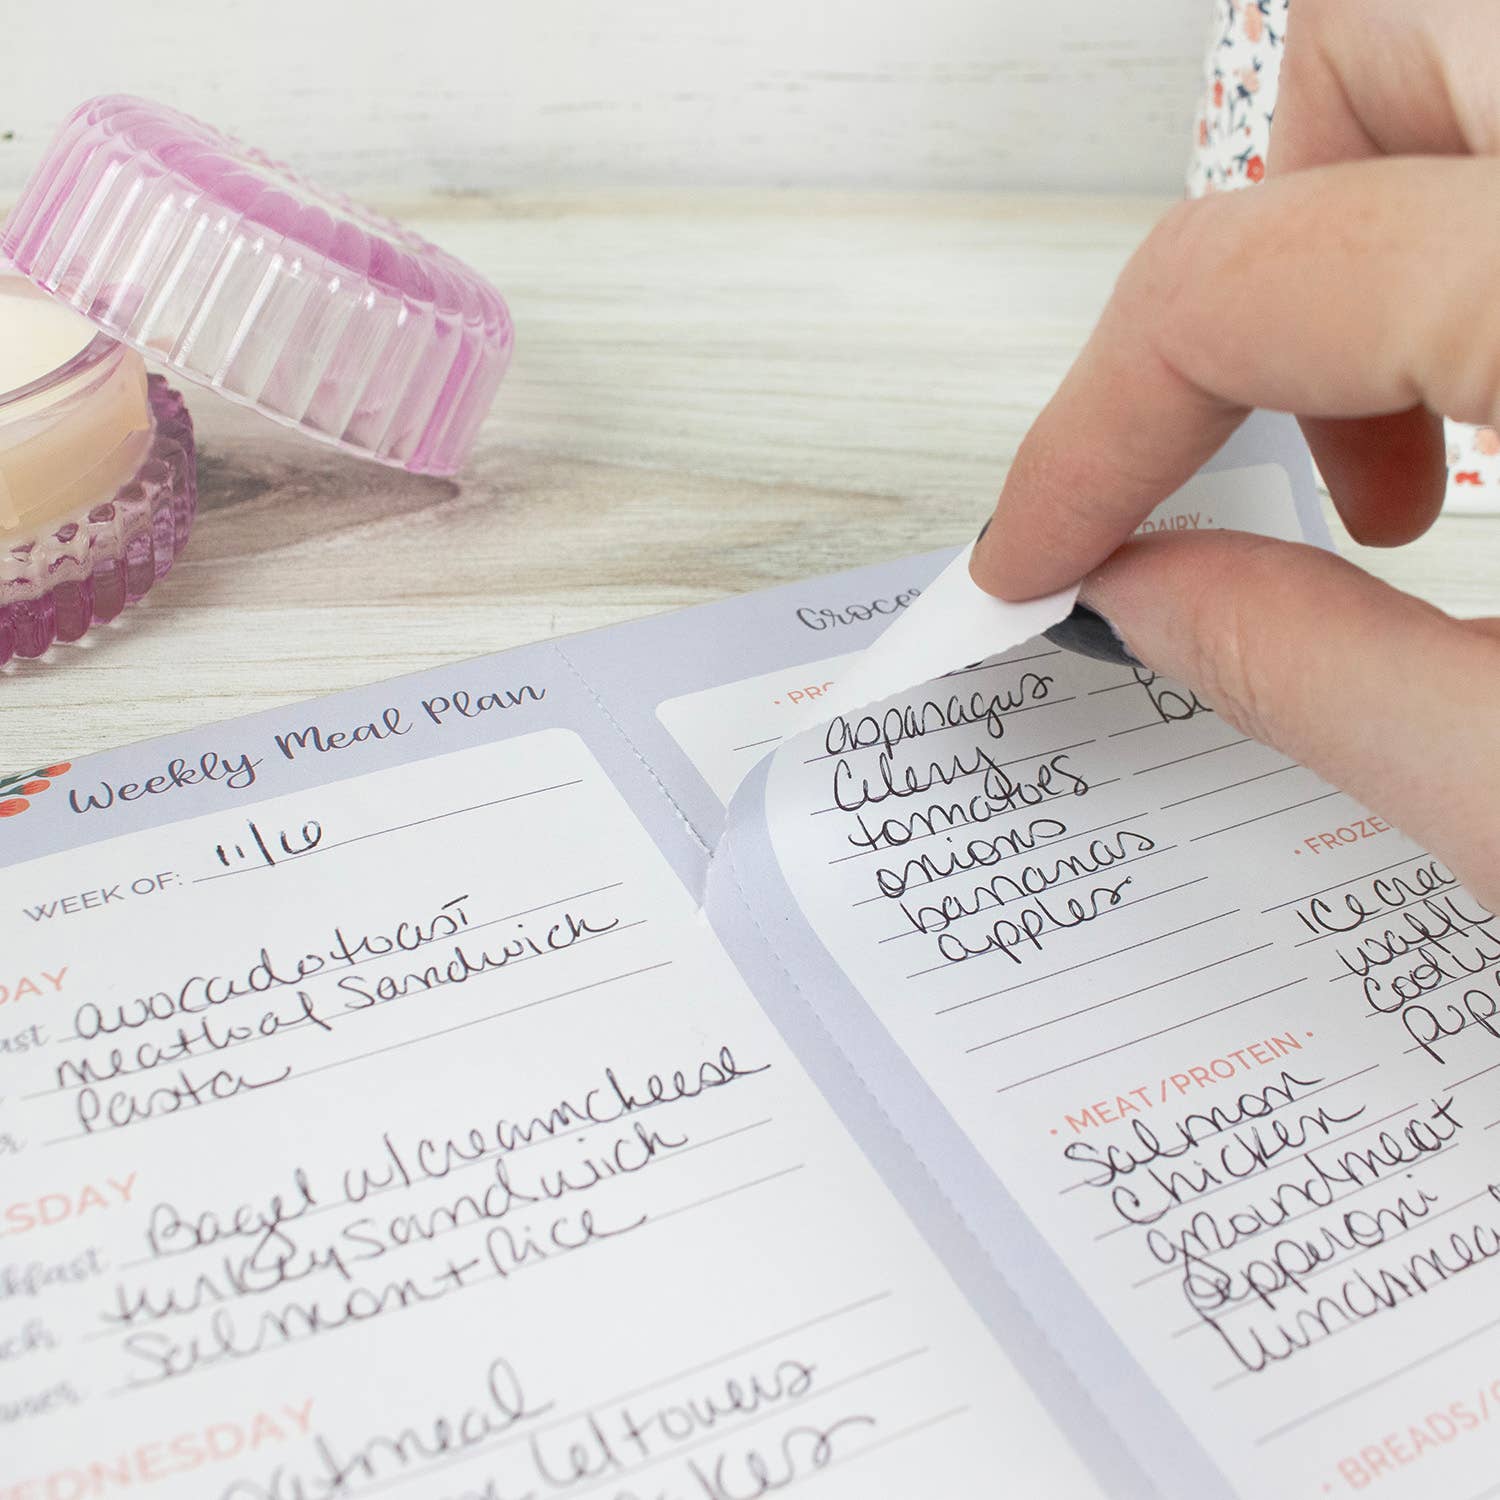 Weekly Meal Plan
WEEK OF: 11/10
DAY
ast avocado toast
meatloaf sandwich
r pasta
SDAY
kfast Bagel w/ creamcheese
ch turkey sandwich
Salmon + Rice
EDNESDAY
oatmeal
leftovers
kes
Groce
DAIRY ·
· PR
asparagus
Celery
tomatoes
onions
bananas
apples
· FROZE
ice crea
waffl
· MEAT/PROTEIN ·
Salmon
chicken
groundmeat
pepperoni
lunchmea
· BREADS/